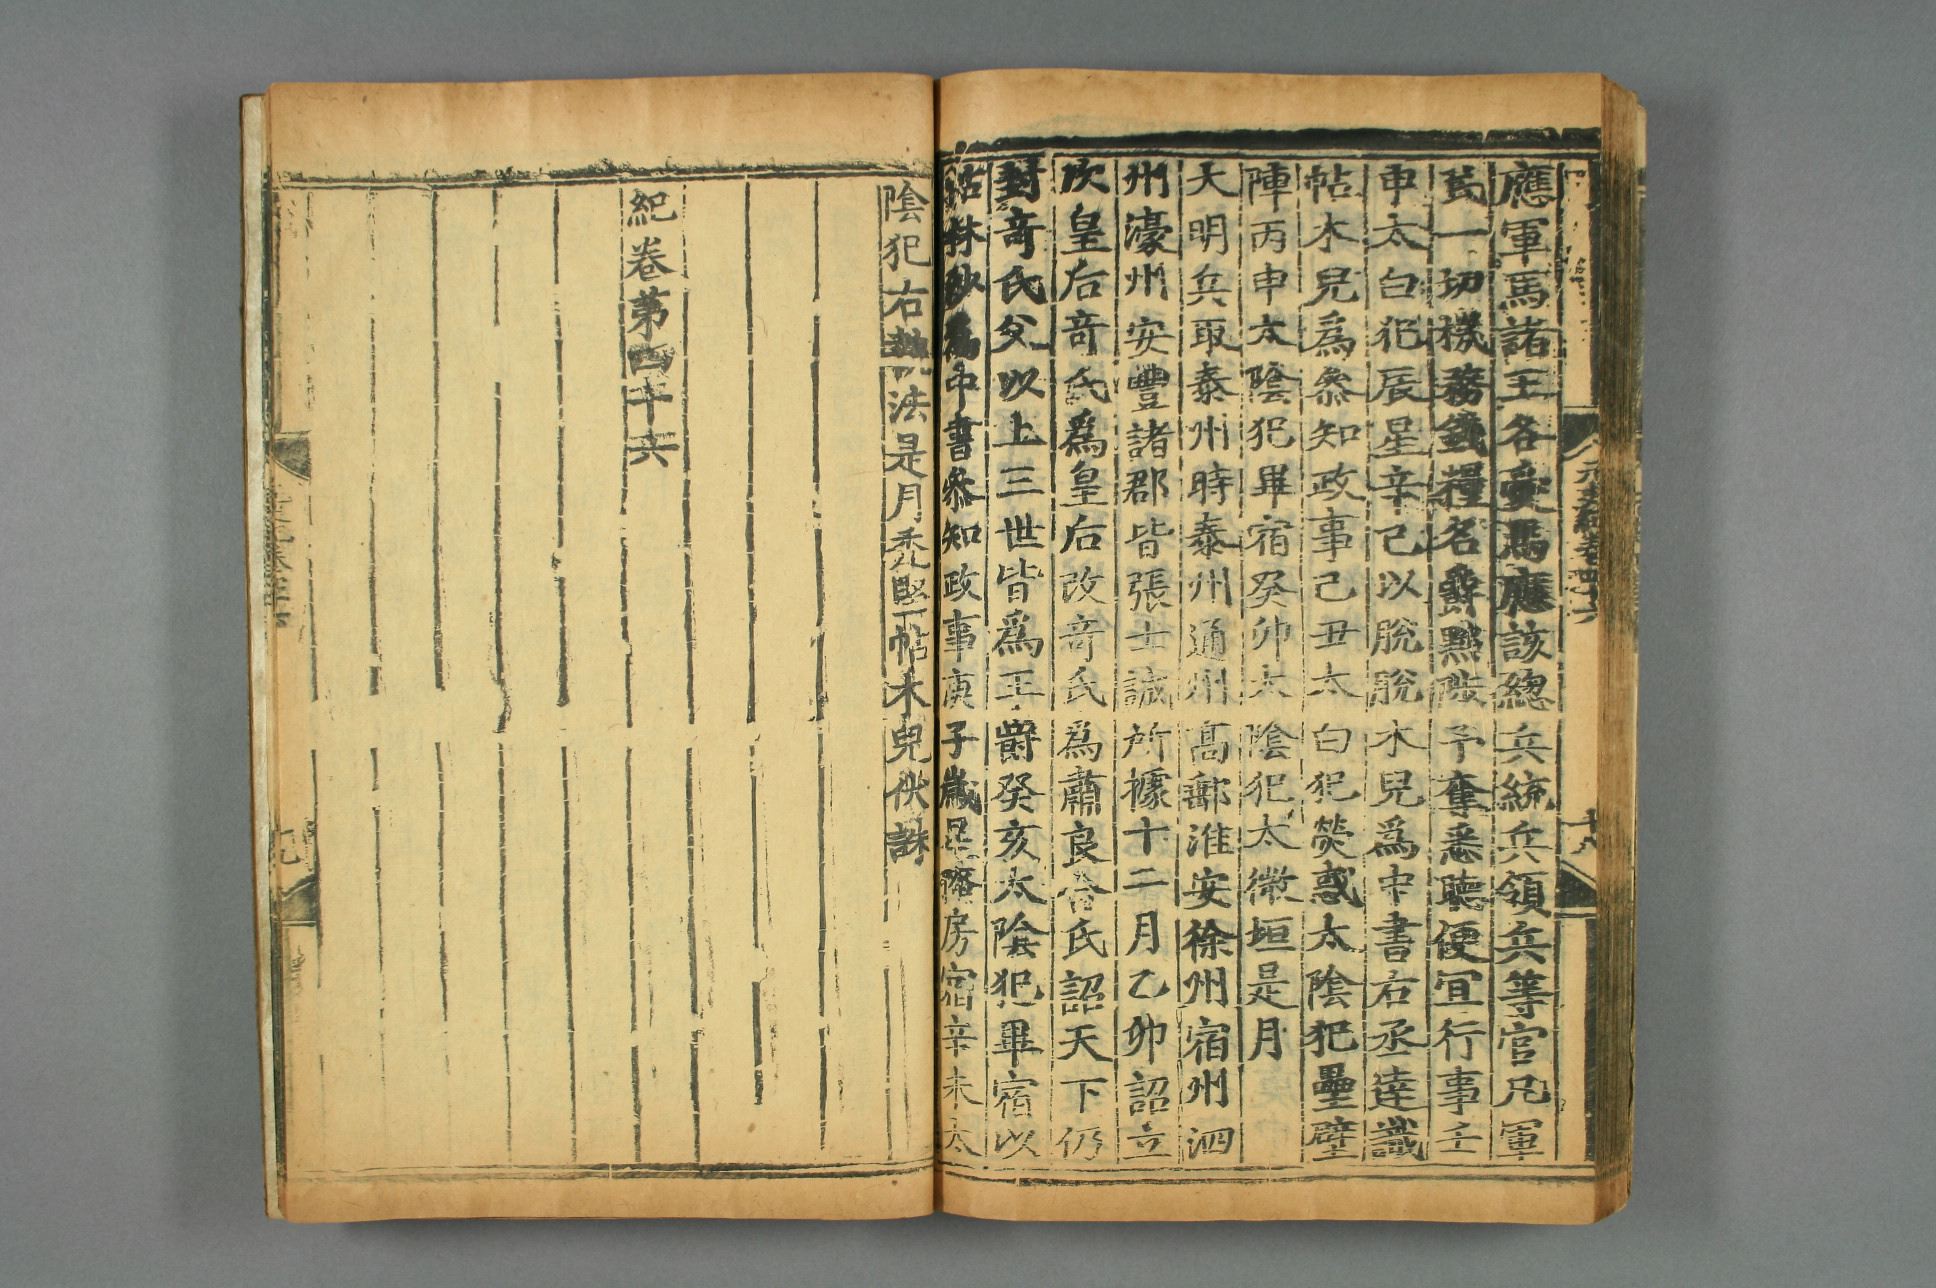 應軍馬諸王各愛馬應該總兵統兵領兵等官凡軍
民一切機務錢糧名爵黜陟予奪悉聽便宜行事壬
申太白犯辰星辛巳以脫脫木兒爲中書右丞達識
帖木兒爲叅知政事己丑太白犯熒惑太陰犯壘壁
陣丙申太陰犯畢宿癸卯太陰犯太微垣是月
大明兵取泰州時泰州通州高郵淮安徐州宿州泗
州濠州安豐諸郡皆張士誠所據十二月乙卯詔立
次皇后竒氏爲皇后改竒氏爲肅良合氏詔天下仍
封竒氏父以上三世皆爲王爵癸亥太陰犯畢宿以
帖林沙爲中書叅知政事庚子歲星掩房宿辛未太
陰犯右執法是月禿堅帖木兒伏誅
紀卷第四十六
元史紀卷四十六
十八
九